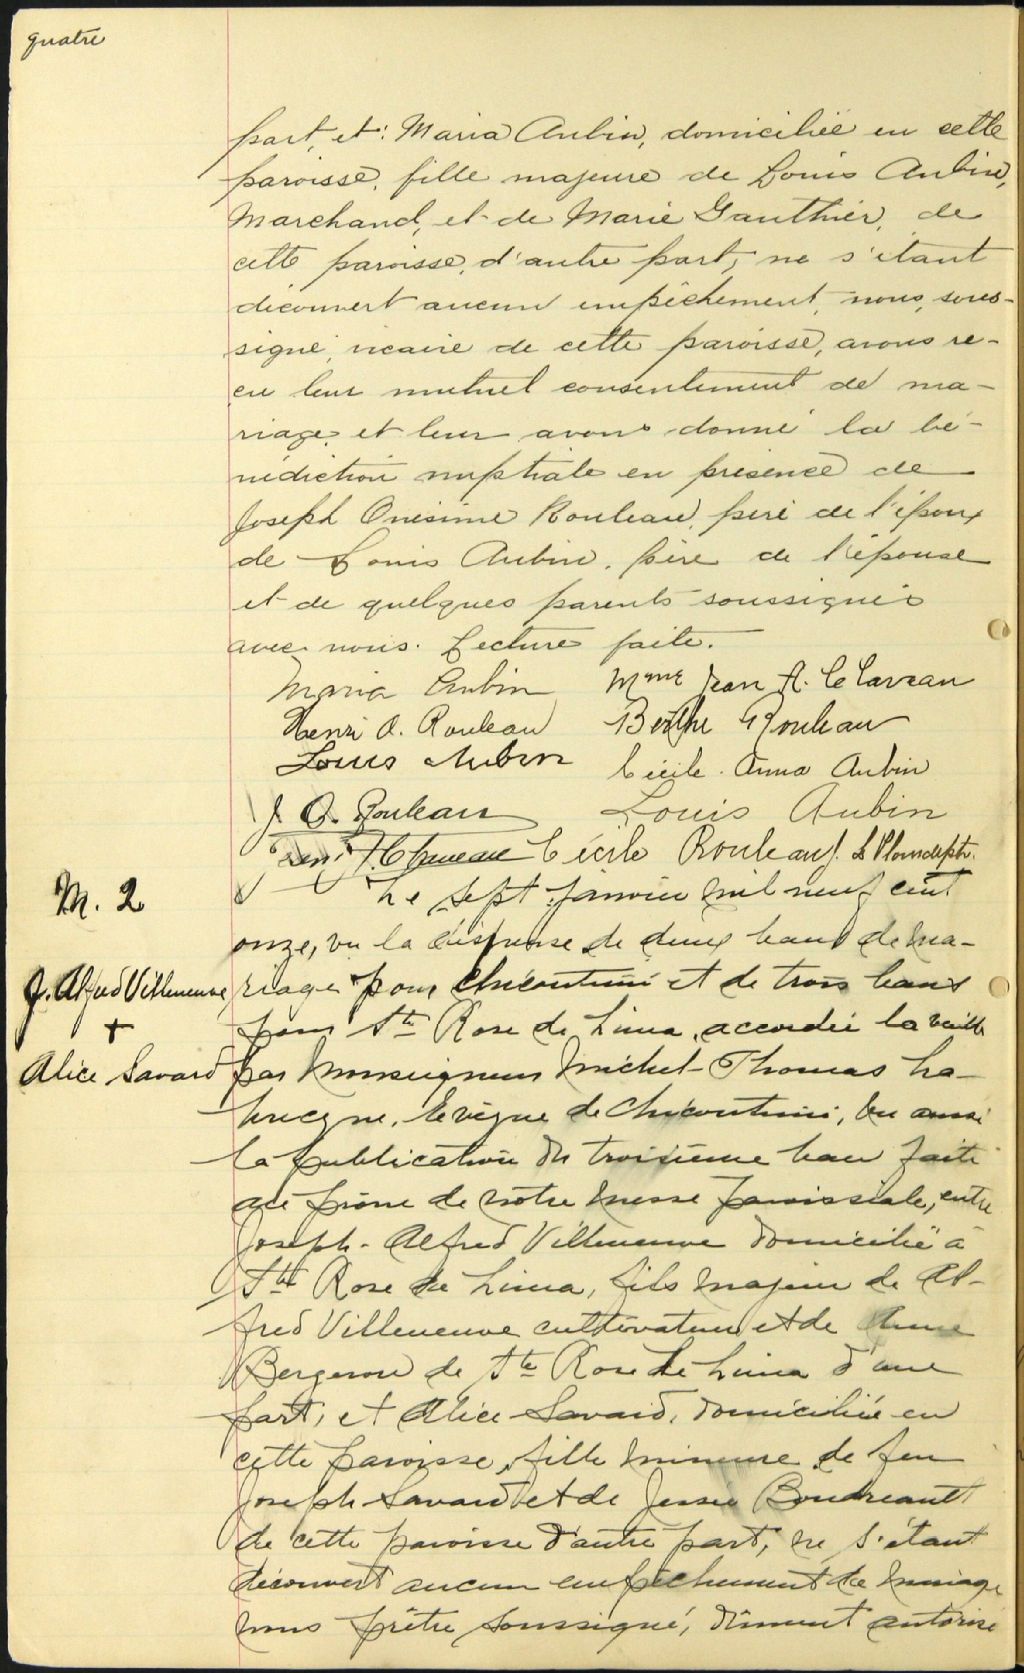 quatre
part, et: Maria Aubin, domiciliée en cette
paroisse, fille majeure de Louis Aubin,
Marchand, et de Marie Gauthier, de
cette paroisse, d'autre part, ne s'étant
découvert aucun empêchement, nous, sous-
signé, vicaire de cette paroisse, avons re-
çu leur mutuel consentement de ma-
riage et leur avons donné la bé-
nédiction nuptiale en présence de
Joseph Onésime Rouleau, père de l'époux
de Louis Aubin, père de l'épouse
et de quelques parents soussignés
avec nous. Lecture faite.
Maria Aubin Mme Jean A.
Henri O. Rouleau Berthe Rouleau
Louis Aubin Cécile-Anna Aubin
J. O. Rouleau Louis Aubin
Cécile Rouleau J.
M. 2
Le sept janvier mil neuf cent
onze, vu la dispense de deux bans de ma-
J. Alfred Villeneuve
+
Alice Savard
riage pour Chicoutimi et de trois bans
pour Ste Rose de Lima, accordée la veille
par Monseigneur Michel-Thomas La-
brecque, évêque de Chicoutimi, vu aussi
la publication du troisième ban faite
au prône de notre messe paroissiale, entre
Joseph-Alfred Villeneuve domicilié à
Ste Rose de Lima, fils majeur de Al-
fred Villeneuve cultivateur et de Anne
Bergeron de Ste Rose de Lima d'une
part, et Alice Savard, domiciliée en
cette paroisse, fille mineure de feu
Joseph Savard et de Jessie Boudreault
de cette paroisse d'autre part, ne s'étant
découvert aucun empêchement de mariage
nous prêtre soussigné, dûment autorisé